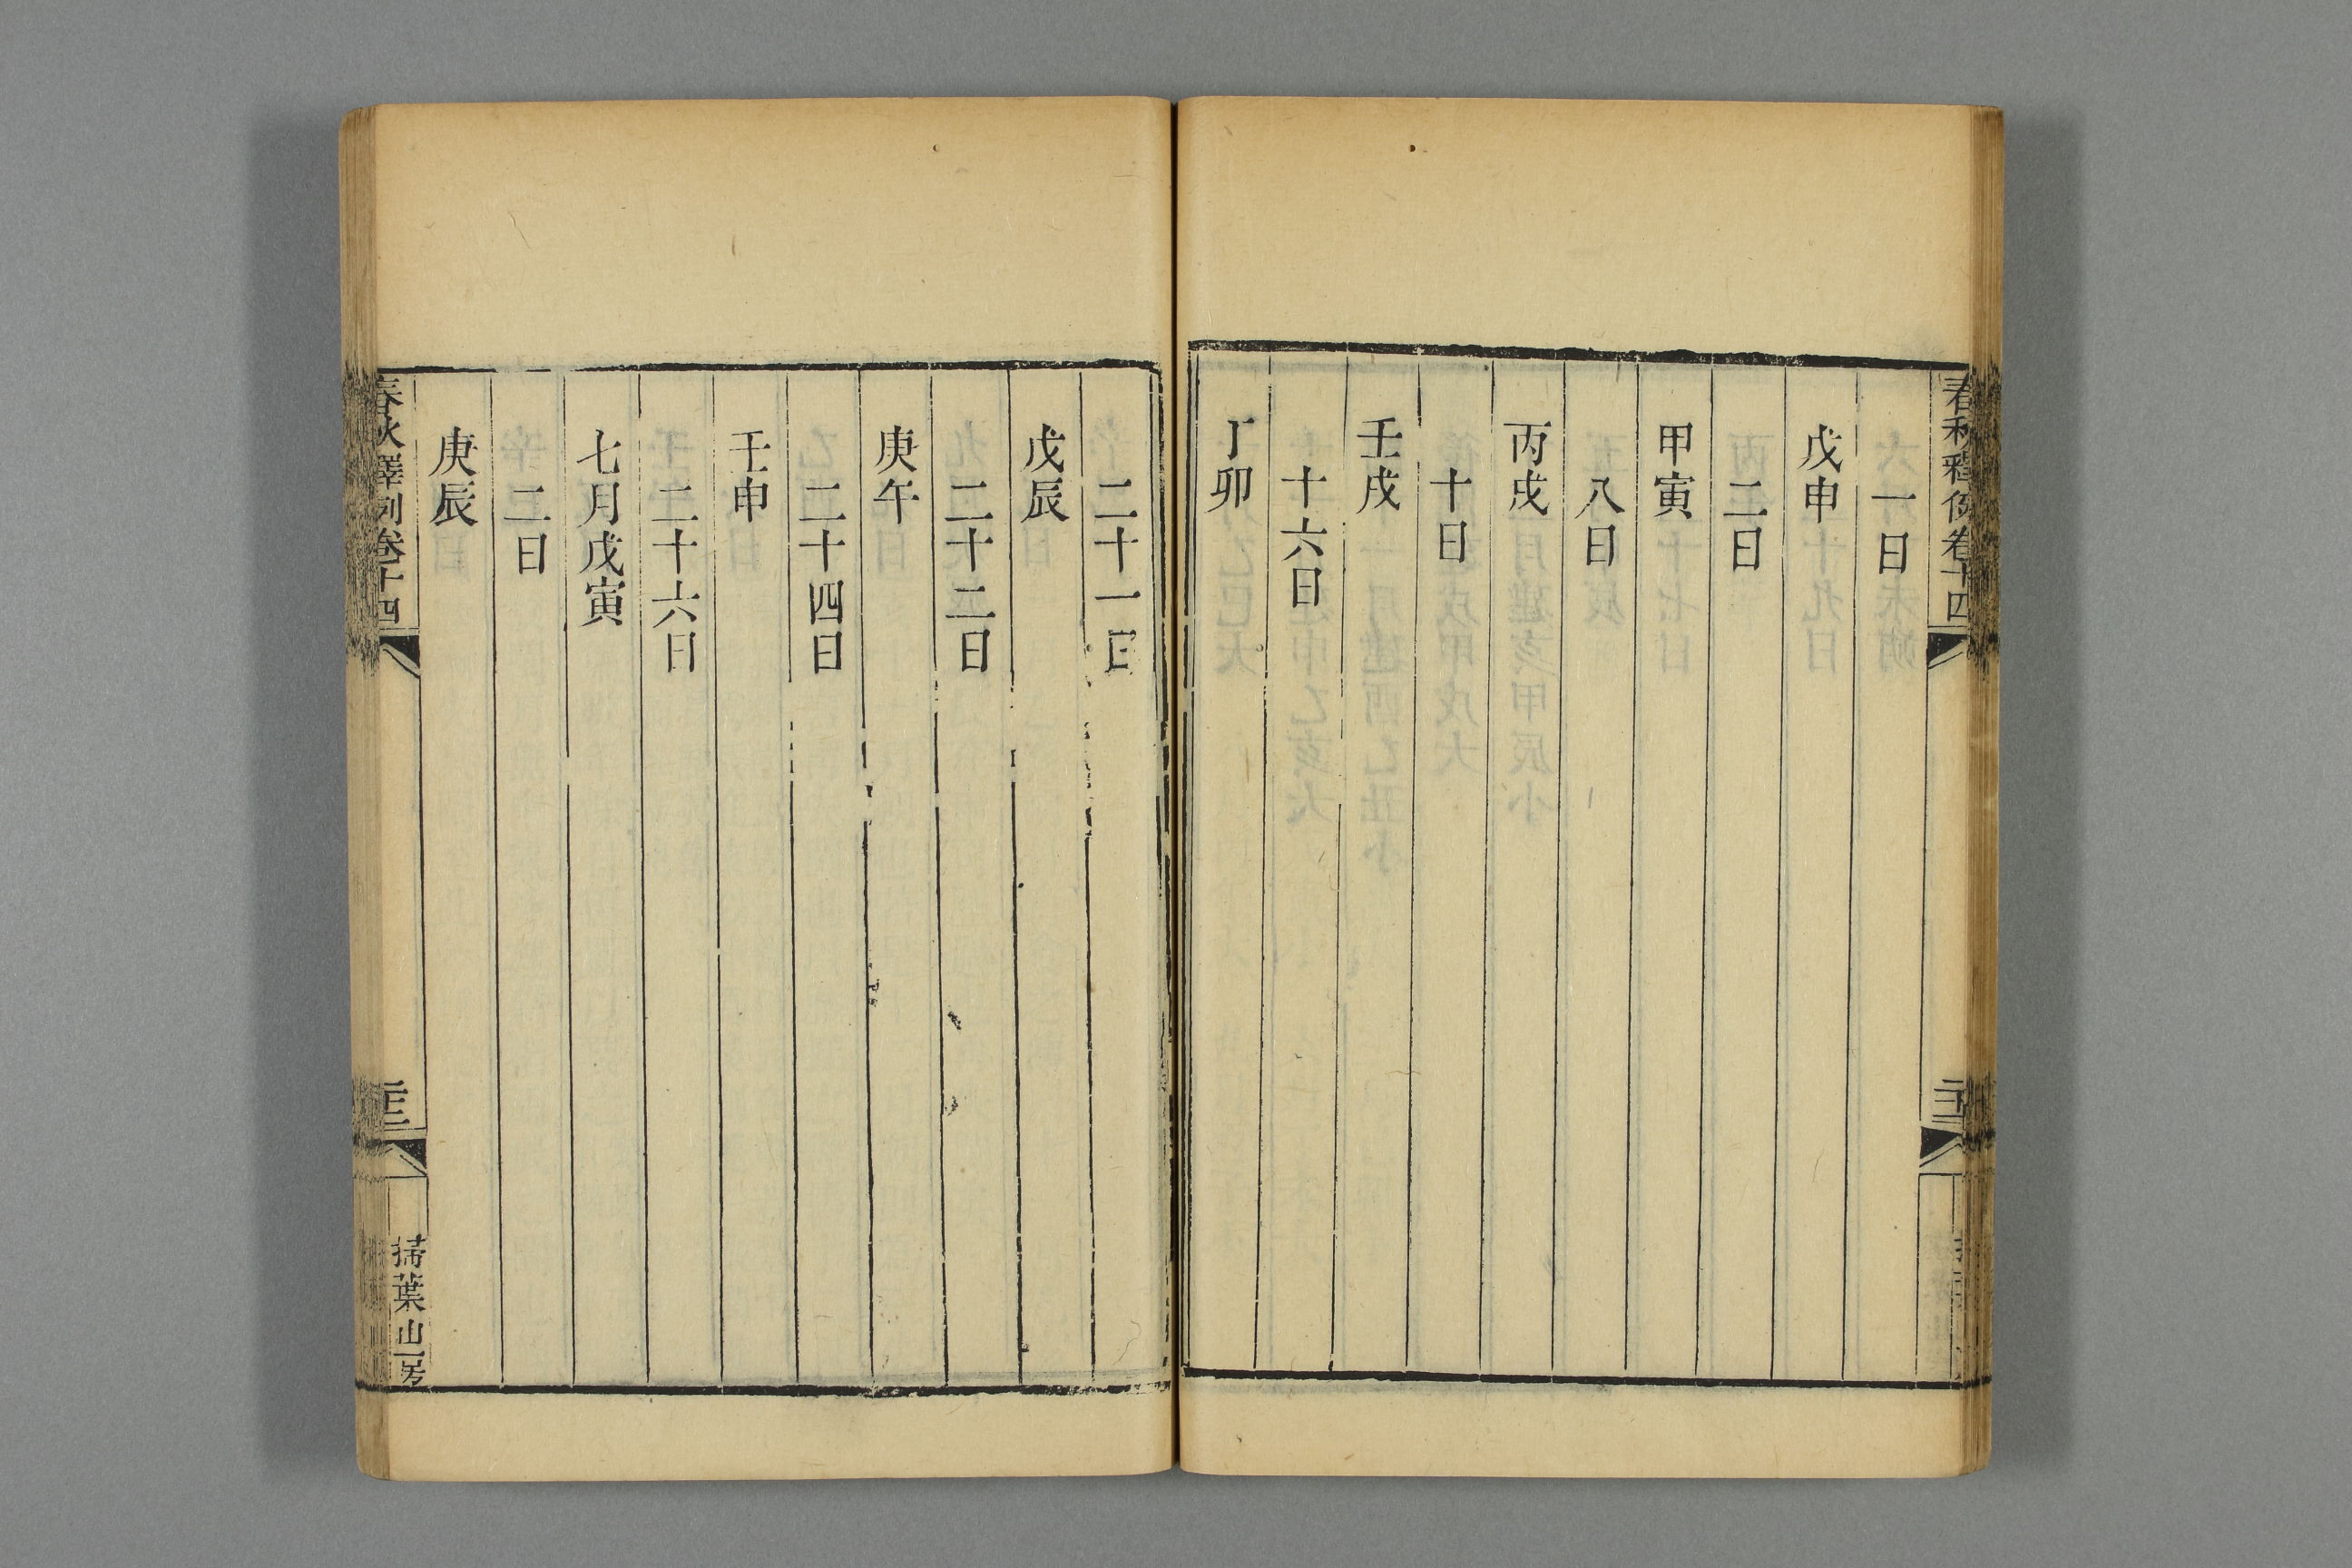 春秋釋例卷十四
一日
戊申
二日
甲寅
八日
丙戌
十日
壬戌
十六日
丁卯
二十一日
戊辰
二十二日
庚午
二十四日
壬申
二十六日
七月戊寅
二日
庚辰
春秋釋例卷十四
掃葉山房